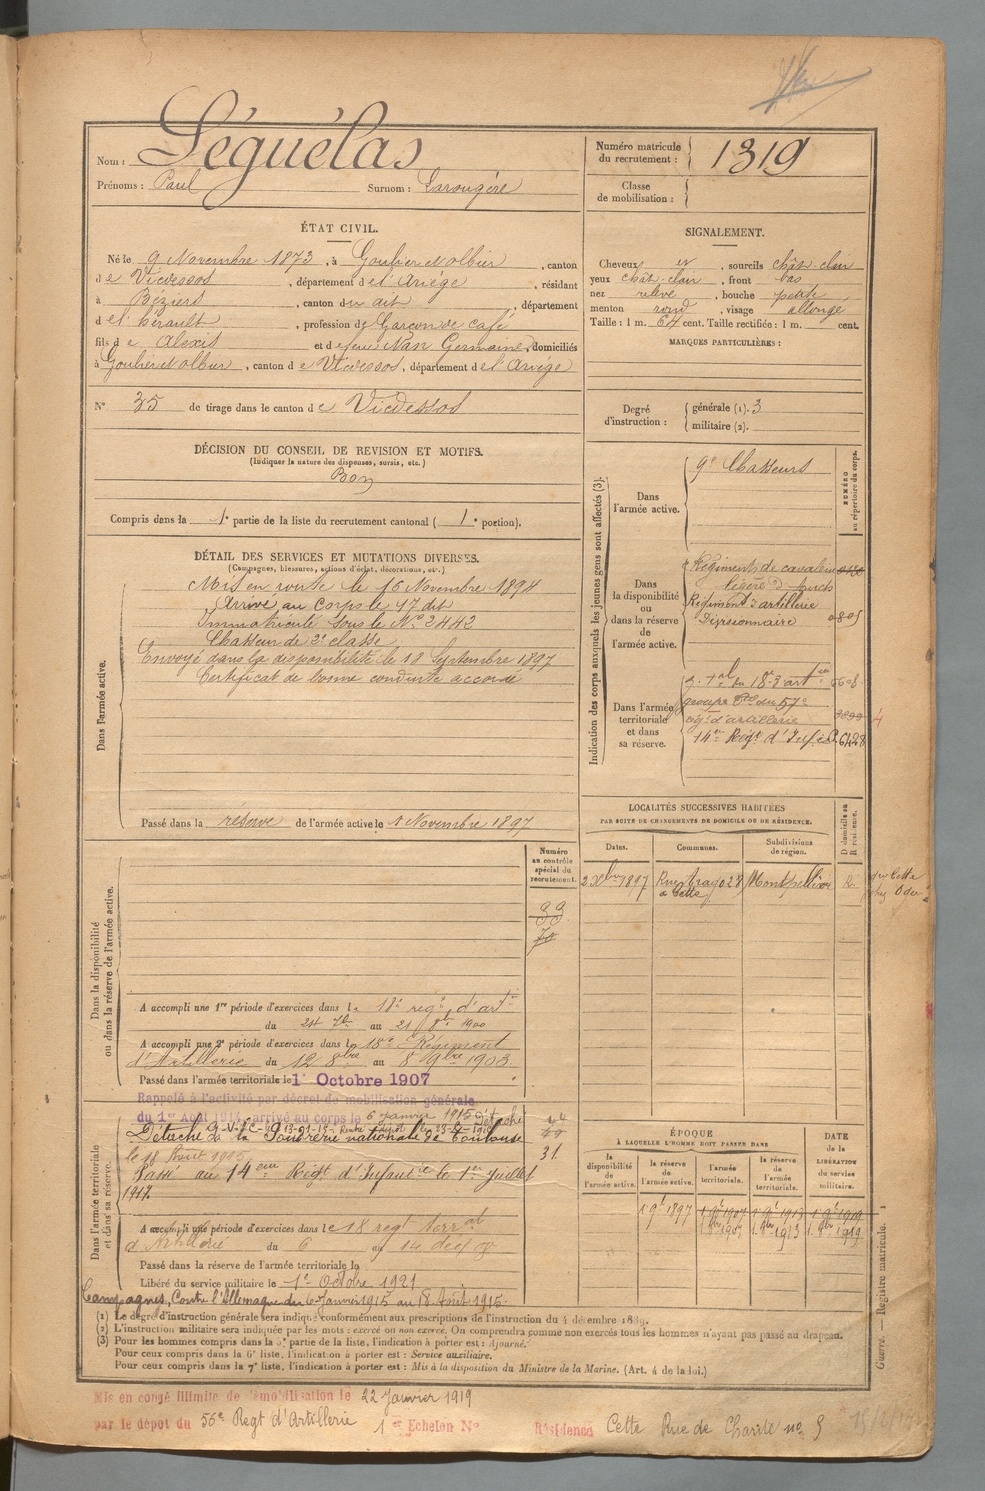 Nom : Séguélas
Prénoms : Paul Surnom : Larougère
Numéro matricule du recrutement : 1319
Classe de mobilisation :
ÉTAT CIVIL.
Né le 9 Novembre 1873, à Goulier et olbier, canton
de Vicdessos, département de l'Ariège, résidant
à Béziers, canton du dit, département
de l'hérault, profession de Garçon de café
fils de Alexis et de feue Nan Germaine, domiciliés
à Goulier et olbier, canton de Vicdessos, département de l'Ariège
N° 35 de tirage dans le canton de Vicdessos
SIGNALEMENT.
Cheveux et, sourcils chât-clair
yeux chât-clair, front bas
nez relevé, bouche petite
menton rond, visage allongé
Taille : 1 m. 64 cent. Taille rectifiée : 1 m. cent.
MARQUES PARTICULIÈRES :
Degré d'instruction : générale (1). 3
militaire (2).
DÉCISION DU CONSEIL DE REVISION ET MOTIFS.
(Indiquer la nature des dispenses, sursis, etc.)
Bon
Compris dans la 1e partie de la liste du recrutement cantonal ( 1e portion).
DÉTAIL DES SERVICES ET MUTATIONS DIVERSES.
(Campagnes, blessures, actions d'éclat, décorations, etc.)
Dans l'armée active.
Mis en route le 16 Novembre 1894
Arrivé au Corps le 17 dit
Immatriculé sous le N° 2442
Chasseur de 2e classe
Envoyé dans la disponibilité le 18 Septembre 1897
Certificat de bonne conduite accordé
Passé dans la réserve de l'armée active le 1 Novembre 1897
Indication des corps auxquels les jeunes gens sont affectés (3).
NUMÉRO au répertoire du corps.
Dans l'armée active.
9e Chasseurs
Dans la disponibilité ou dans la réserve de l'armée active.
Régiments de cavalerie
légère
Régiment d'artillerie
Divisionnaire
Dans l'armée territoriale et dans sa réserve.
groupe du 57e
régt d'artillerie
14e Régt d'Infie 6428
LOCALITÉS SUCCESSIVES HABITÉES
PAR SUITE DE CHANGEMENTS DE DOMICILE OU DE RÉSIDENCE.
Dates. Communes. Subdivisions de région. D domicile ou R résidence.
2 Xbre 1897 Rue Arago 28 à Cette Montpellier R.
Dans la disponibilité ou dans la réserve de l'armée active.
Numéro au contrôle spécial du recrutement.
33
70
A accompli une 1re période d'exercices dans le 18e régt d'artie
du 24 7bre au 21 8bre 1900
A accompli une 2e période d'exercices dans le 18e Régiment
d'Artillerie du 12 8bre au 8 9bre 1903
Passé dans l'armée territoriale le 1er Octobre 1907
Dans l'armée territoriale et dans sa réserve.
Rappelé à l'activité par décret de mobilisation générale
du 1er Août 1914, arrivé au corps le 6 Janvier 1915
Détaché à la Poudrerie nationale de Toulouse
le 18 Août 1915
31
Passé au 14eme Régt d'Infantie le 1er Juillet
1917.
A accompli une période d'exercices dans le 18 régt terral
d'Artillerie du 6 au 14
Passé dans la réserve de l'armée territoriale le
Libéré du service militaire le 1er Octobre 1921
Campagnes, Contre l'Allemagne du 6 Janvier 1915 au 18 Août 1915.
ÉPOQUE
À LAQUELLE L'HOMME DOIT PASSER DANS
la disponibilité de l'armée active. la réserve de l'armée active. l'armée territoriale. la réserve de l'armée territoriale. DATE de la LIBÉRATION du service militaire.
1 9e 1897 1 9e 1907 1 9e 1913 1 9e 1919
1 8bre 1907 1 8bre 1913 1 8bre 1919
(1) Le degré d'instruction générale sera indiqué conformément aux prescriptions de l'instruction du 4 décembre 1889.
(2) L'instruction militaire sera indiquée par les mots : exercé ou non exercé. On comprendra comme non exercés tous les hommes n'ayant pas passé au drapeau.
(3) Pour les hommes compris dans la 5e partie de la liste, l'indication à porter est : Ajourné.
Pour ceux compris dans la 6e liste, l'indication à porter est : Service auxiliaire.
Pour ceux compris dans la 7e liste, l'indication à porter est : Mis à la disposition du Ministre de la Marine. (Art. 4 de la loi.)
Guerre. — Registre matricule.
Mis en congé illimité de démobilisation le 22 Janvier 1919
par le dépôt du 56e Regt d'Artillerie 1er Echelon N° Résidence Cette Rue de Charité no 5